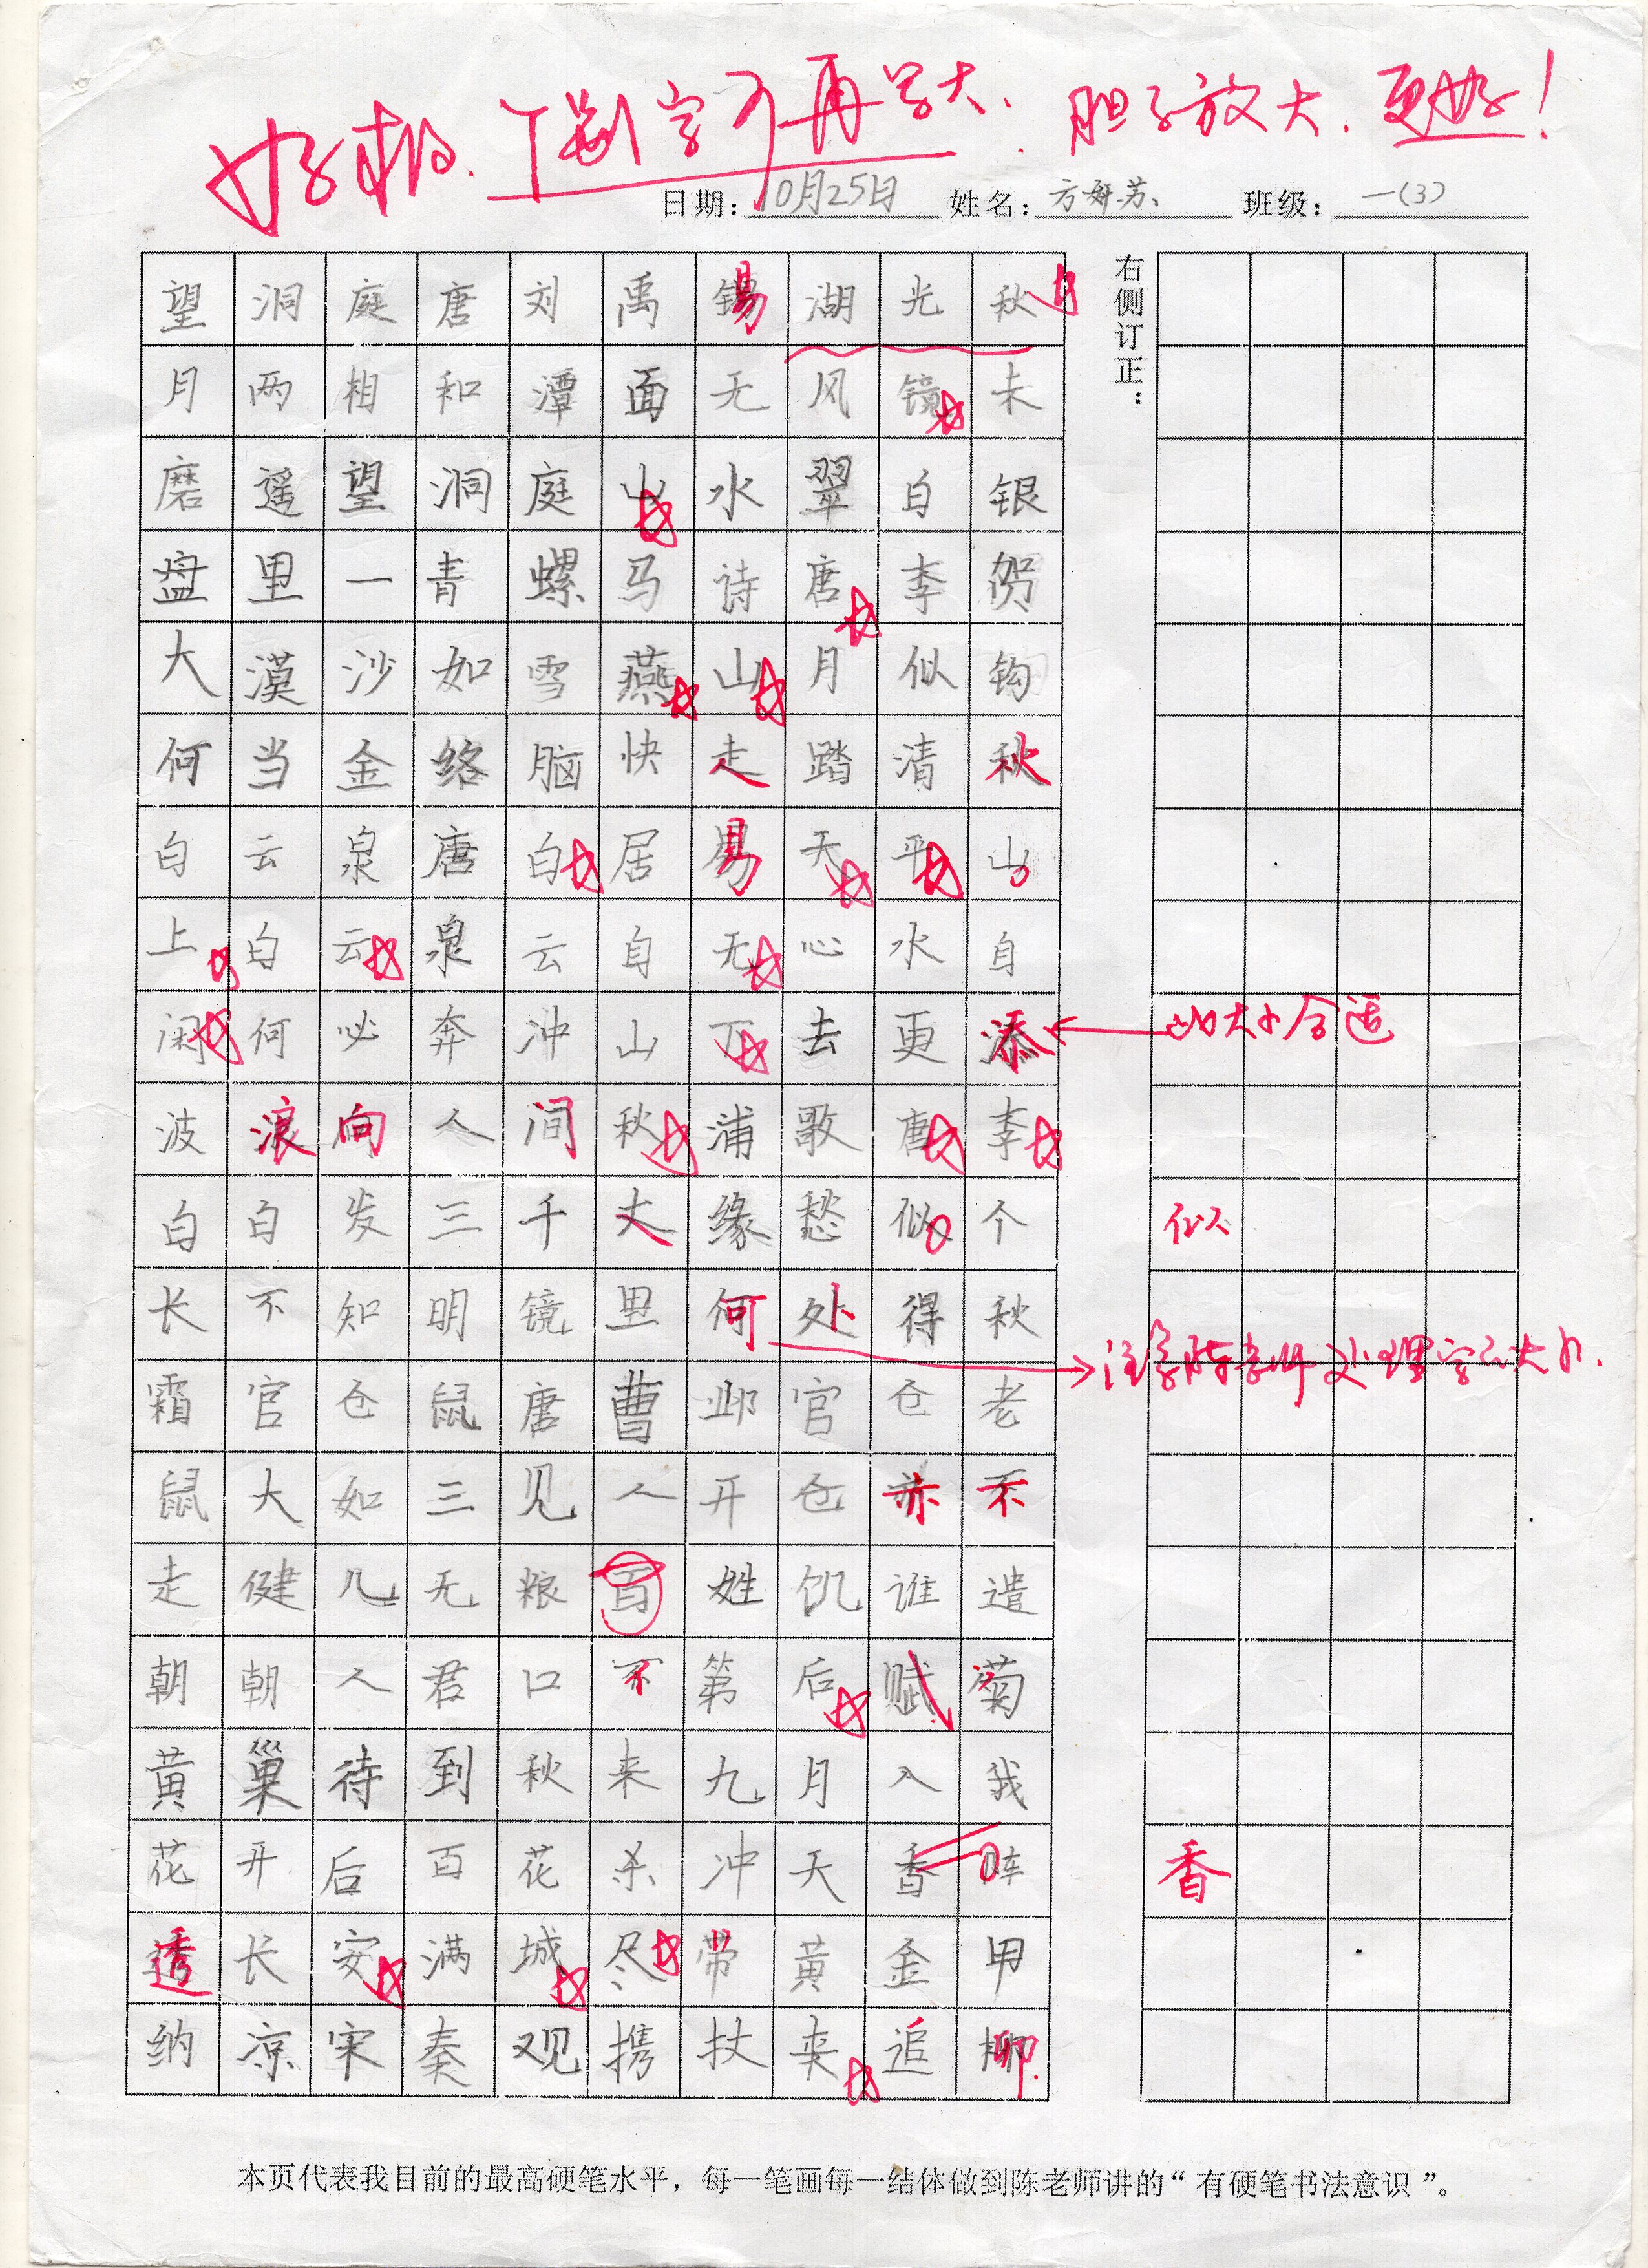 好极. 个别字可再写大. 胆子放大. 更好!
日期: 10月25日 姓名: 方妍苏 班级: 一(3)
右侧订正:
望洞庭唐刘禹锡湖光秋
月两相和潭面无风镜未
磨遥望洞庭山水翠白银
盘里一青螺马诗唐李贺
大漠沙如雪燕山月似钩
何当金络脑快走踏清秋
白云泉唐白居易天平山
上白云泉云自无心水自
闲何必奔冲山下去更添
大小合适
波浪向人间秋浦歌唐李
白白发三千丈缘愁似个
似
长不知明镜里何处得秋
处理字的大小.
霜官仓鼠唐曹邺官仓老
鼠大如三见人开仓亦不
走健儿无粮百姓饥谁遣
朝朝人君口不第后赋菊
黄巢待到秋来九月入我
花开后百花杀冲天香阵
香
透长安满城尽带黄金甲
纳凉宋秦观携扙来追柳
本页代表我目前的最高硬笔水平，每一笔画每一结体做到陈老师讲的“有硬笔书法意识”。